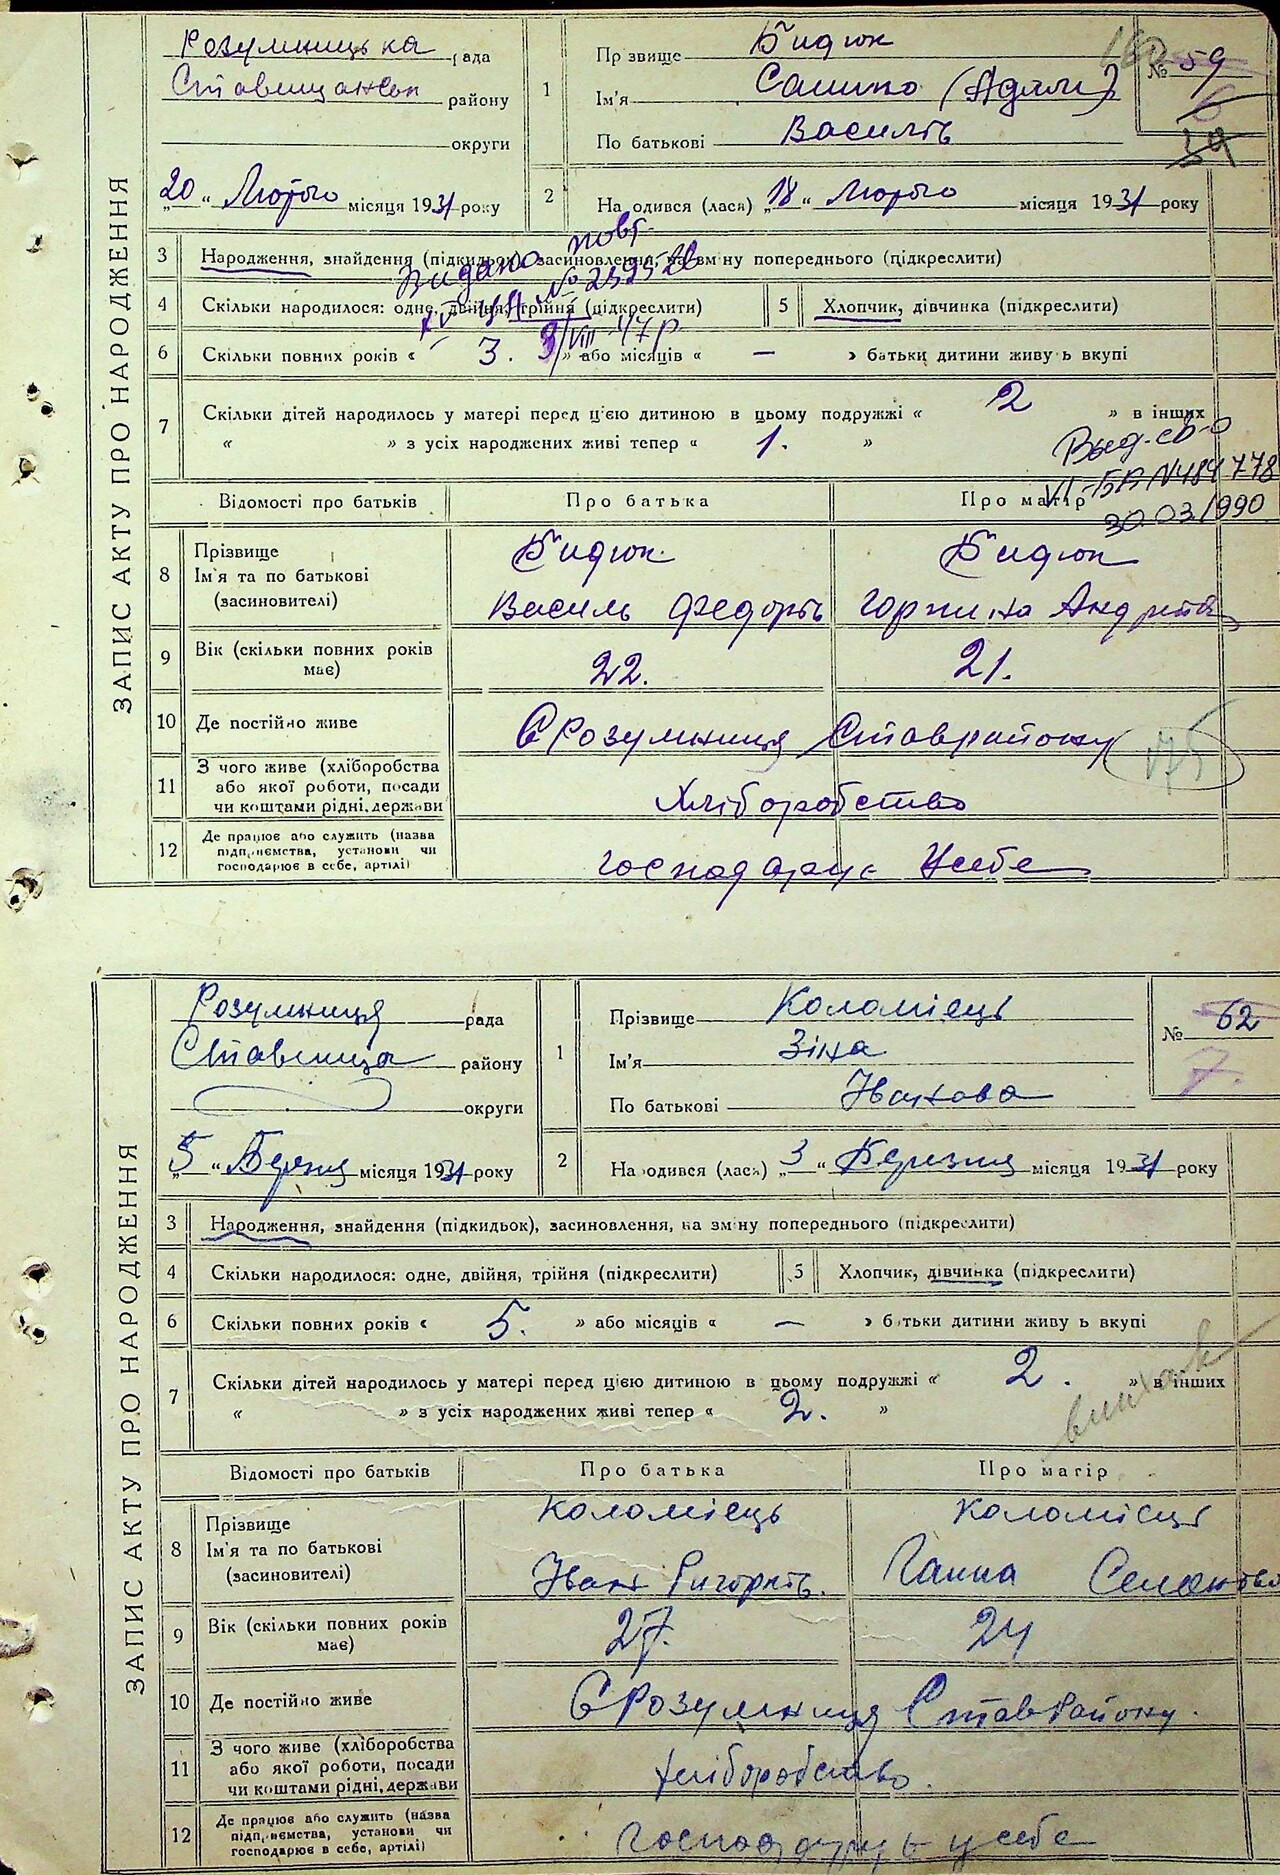 ЗАПИС АКТУ ПРО НАРОДЖЕННЯ
Розумницька рада
району
округи
„20“ Лютого місяця 1931 року
1
Прізвище Бидюк
Ім'я Сашко (Адам)
По батькові Василів
№ 59
6
39
2
Народився (лася) „18“ Лютого місяця 1931 року
3 Народження, знайдення (підкидьок), засиновлення, на зміну попереднього (підкреслити)
Видано повт.
№ 239528
3/VIII-47р.
4 Скільки народилося: одне, двійня, трійня (підкреслити)
5 Хлопчик, дівчинка (підкреслити)
6 Скільки повних років « 3. » або місяців « — » батьки дитини живуть вкупі
7 Скільки дітей народилось у матері перед цією дитиною в цьому подружжі « 2 » в інших
« » з усіх народжених живі тепер « 1. »
Выд. св-о
VI-БА N484778
30.03.1990
Відомості про батьків Про батька Про матір
8 Прізвище Ім'я та по батькові (засновителі)
Бидюк Бидюк
Василь Федорів Горпина Андріїв
9 Вік (скільки повних років має) 22. 21.
10 Де постійно живе С Розумниця Ставрайону
175
11 З чого живе (хліборобства або якої роботи, посади чи коштами рідні, держави Хліборобство
12 Де працює або служить (назва підприємства, установи чи господарює в себе, артілі) господарує Усебе
ЗАПИС АКТУ ПРО НАРОДЖЕННЯ
Розумниця рада
Ставища району
округи
„5“ Березня місяця 1931 року
1
Прізвище Коломієць
Ім'я Зіна
По батькові Іванова
№ 62
7.
2
Народився (лася) „3“ Березня місяця 1931 року
3 Народження, знайдення (підкидьок), засиновлення, на зміну попереднього (підкреслити)
4 Скільки народилося: одне, двійня, трійня (підкреслити)
5 Хлопчик, дівчинка (підкреслити)
6 Скільки повних років « 5. » або місяців « — » батьки дитини живуть вкупі
7 Скільки дітей народилось у матері перед цією дитиною в цьому подружжі « 2. » в інших
« » з усіх народжених живі тепер « 2. »
Відомості про батьків Про батька Про матір
8 Прізвище Ім'я та по батькові (засиновителі)
Коломієць Коломієць
Іван Григорів. Ганна Семенова
9 Вік (скільки повних років має) 27. 24
10 Де постійно живе С Розумниця Ставрайону.
11 З чого живе (хліборобства або якої роботи, посади чи коштами рідні, держави хліборобство.
12 Де працює або служить (назва підприємства, установи чи господарює в себе, артілі) господарує у себе